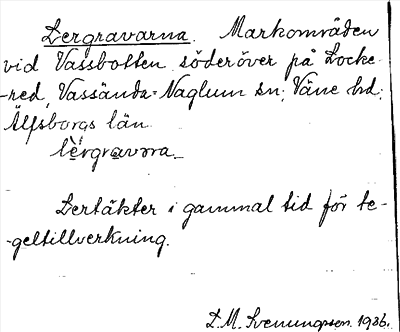 Lergravarna. Markområden
vid Vassbotten söderöver på Locke-
-red, Vassända-Naglum sn; Väne hd;
Älfsborgs län.
lèrgravara_
Lertäkter i gammal tid för te-
-geltillverkning.
L.M. Svenungsson 1936.